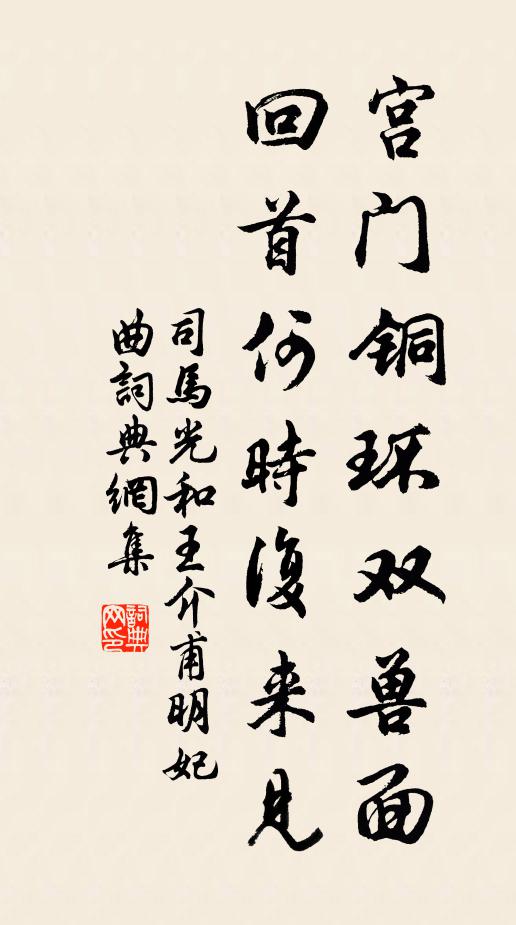 宫门铜环双兽面
回首何時復来見
司馬光和王介甫明妃
曲詞典網集
詞典網印